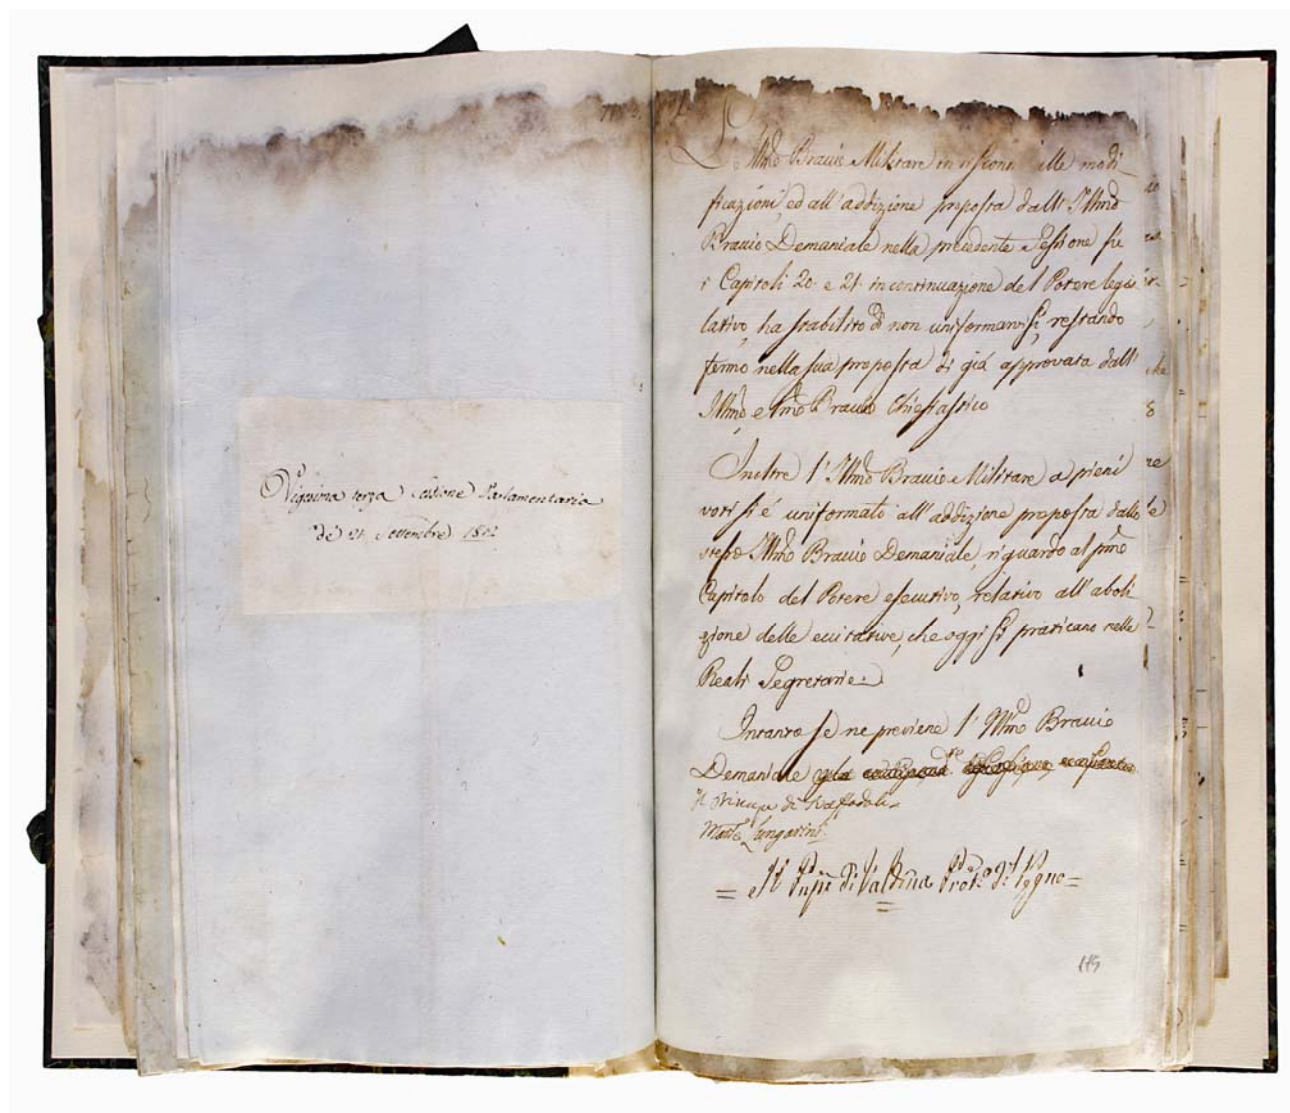 Vigesima terza Sessione Parlamentaria
de' 21. Settembre 1812
L'Illmo Braccio Militare in alle modi_
ficazioni, ed all'addizione proposta dall'Illmo
Braccio Demaniale nella precedente Sessione su
i Capitoli 20. e 21. in continuazione del Potere legis
lativo, ha stabilito di non uniformarvisi, restando
fermo nella sua proposta di già approvata dall'
Illmo, e Rmo Braccio Ecclesiastico
Inoltre l'Illmo Braccio Militare a pieni
voti si é uniformato all'addizione proposta dallo
stesso Illmo Braccio Demaniale, riguardo al pmo
Capitolo del Potere esecutivo, relativo all'aboli
zione delle, che oggi si praticano nelle
Reali Segretarie.
Intanto se ne previene l'Illmo Braccio
Demaniale
Il Principe di Raffadali
Lungarini
= Il Pnpe di Valdina Proto. del Regno =
115